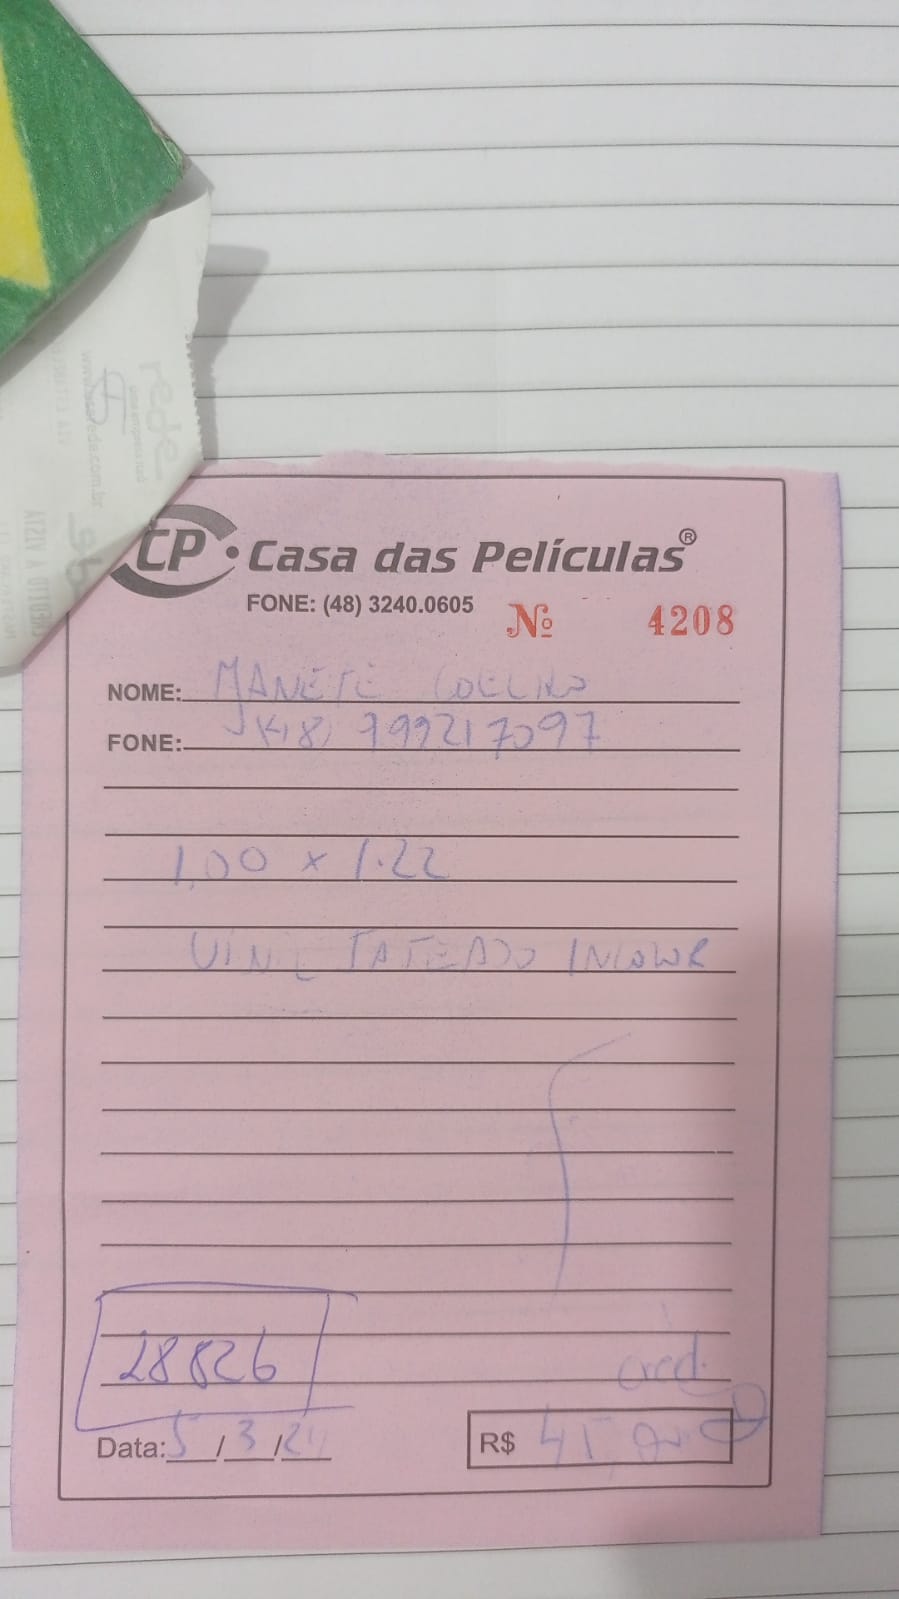 CP • Casa das Películas®
FONE: (48) 3240.0605
Nº 4208
NOME: COELHO
FONE: (48) 999217097
1,00 x 1.22
VINIL JATEADO INCOLOR
28826
créd.
Data: 5/3/24
R$ 45,00
rede